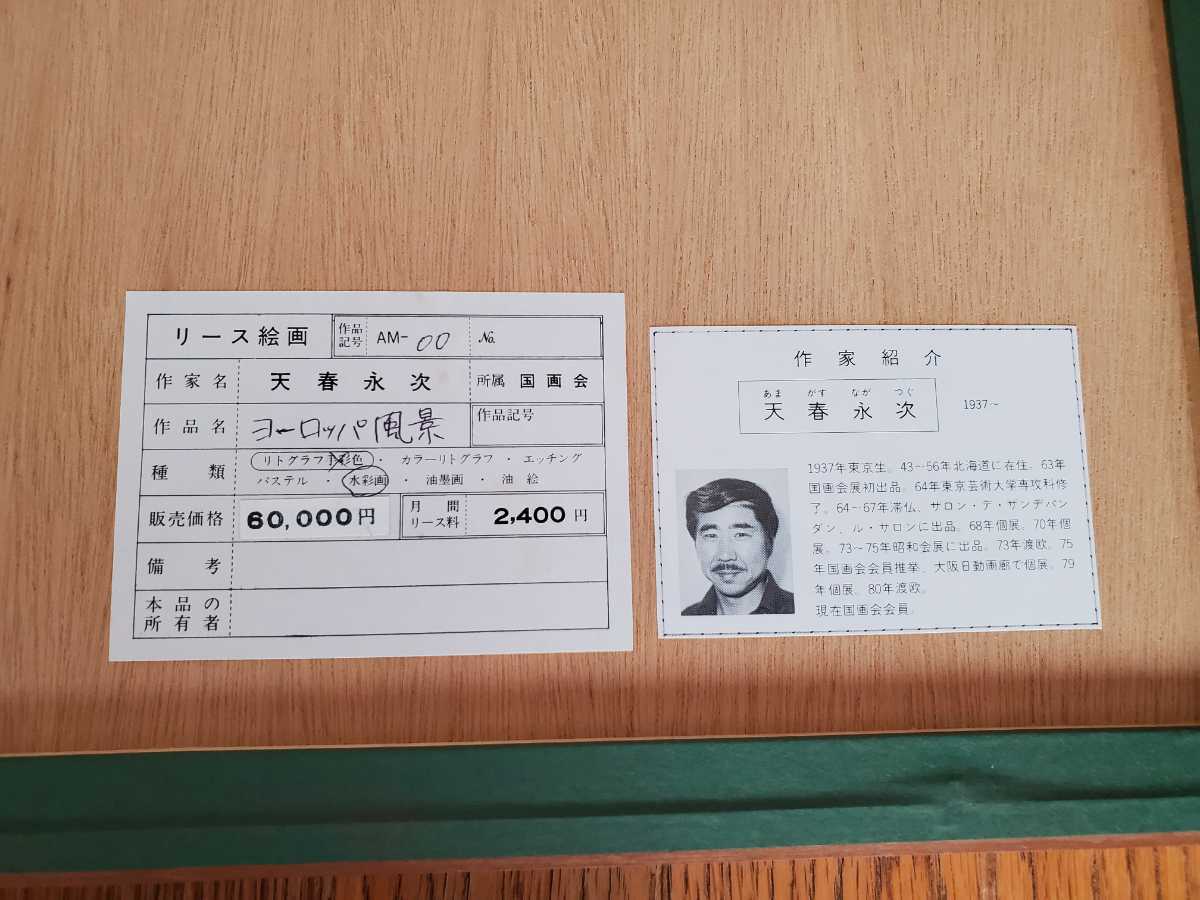 リース絵画 作品記号 AM-00 No.
作家名 天春永次 所属 国画会
作品名 ヨーロッパ風景 作品記号
種類 リトグラフ手彩色・カラーリトグラフ・エッチング
パステル・水彩画・油墨画・油絵
販売価格 60,000円 月間リース料 2,400円
備考
本品の所有者
作家紹介
あま がす なが つぐ
天春永次 1937~
1937年東京生。43~56年北海道に在住。63年
国画会展初出品。64年東京芸術大学専攻科修
了。64~67年滞仏、サロン・テ・サンデパン
ダン、ル・サロンに出品。68年個展。70年個
展。73~75年昭和会展に出品。73年渡欧。75
年国画会会員推挙、大阪日動画廊で個展。79
年個展。80年渡欧。
現在国画会会員。